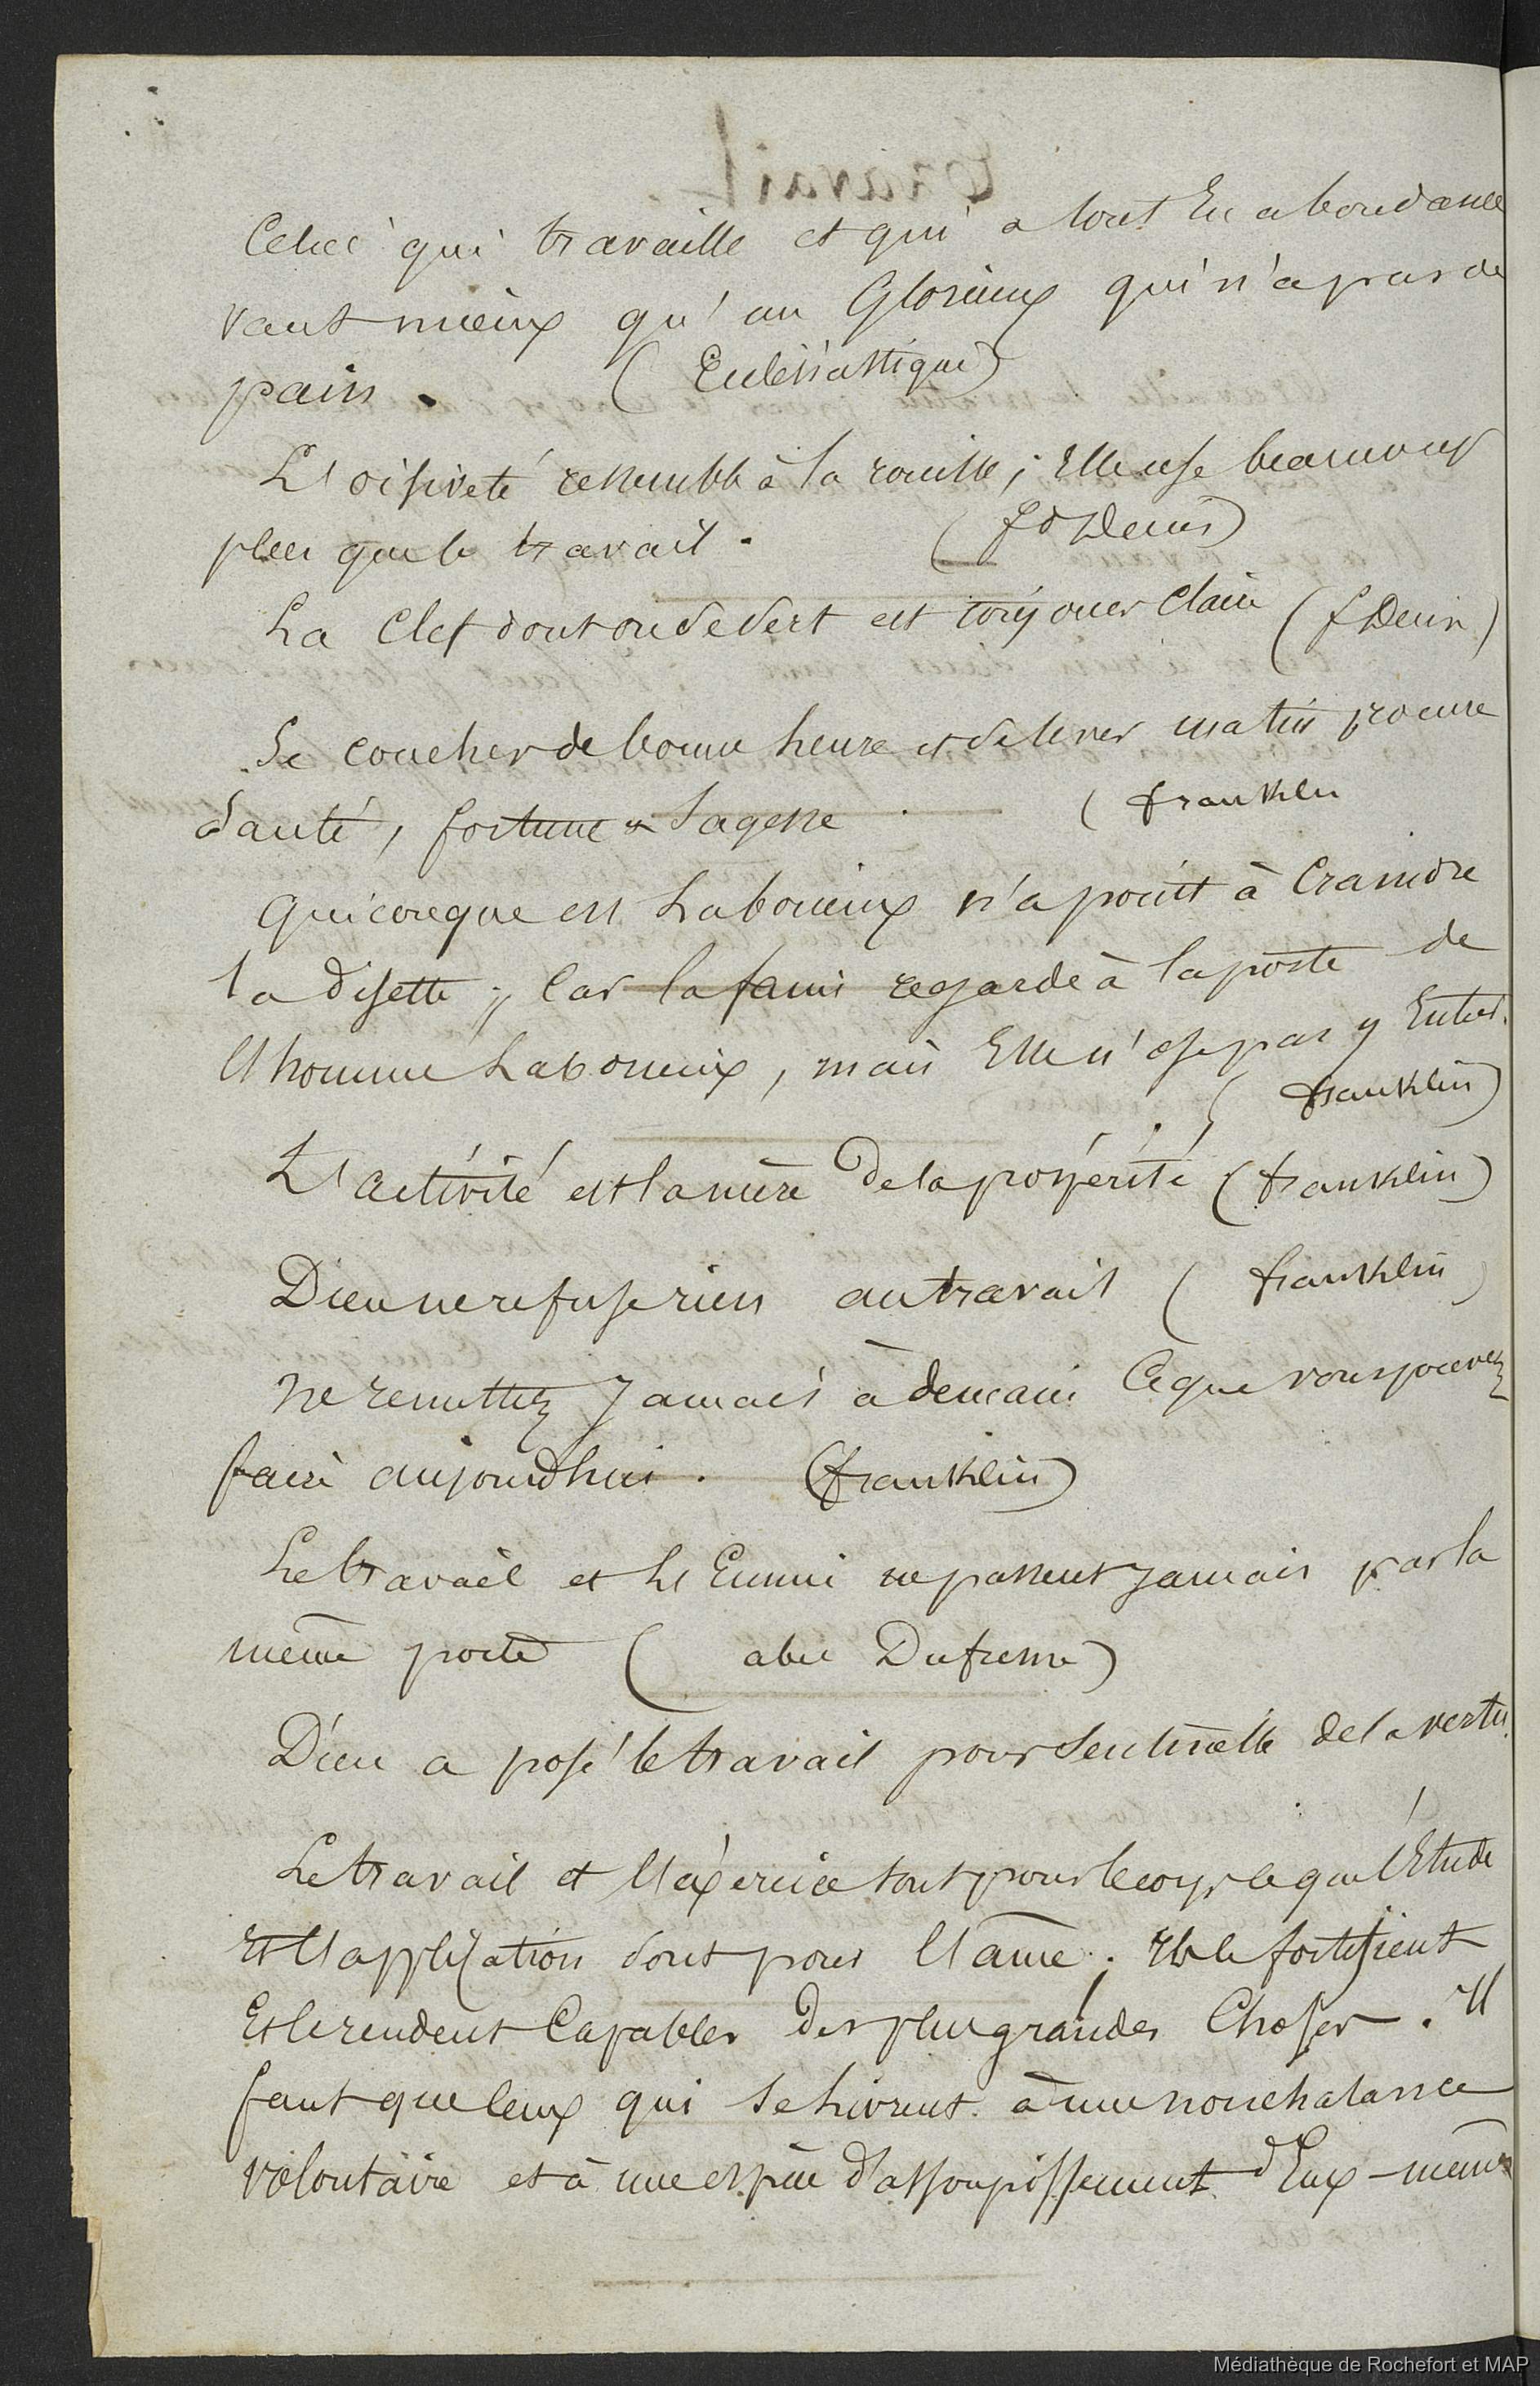 Celui qui travaille et qui a tout En abondance
vaut mieux qu'un Glorieux qui n'a pas de
pain. (Ecclésiastique)
L'oisiveté ressemble à la rouille; Elle use beaucoup
plus que le travail. (fd Denis)
La Clef dont on se sert est toujours Claire (f Denis)
Se coucher de bonne heure et se lever matin procure
Santé, fortune & Sagesse (franklin
Quiconque est Laborieux n'a point à Craindre
la disette; Car la faim regarde à la porte de
l'homme Laborieux, mais Elle n'ose pas y Entrer.
(franklin)
L'activité est la mère de la prospérité (franklin)
Dieu ne refuse rien au travail (franklin)
ne remettez Jamais à demain Ce que vous pouvez
faire aujourdhui. (franklin)
Le travail et L'Ennui ne passent Jamais par la
même porte (abé Dufresne)
Dieu a posé le travail pour Sentinelle de la vertu
Le travail et l'éxercice sont pour le corps ce que l'Etude
Et l'application sont pour l'âme; Ils le fortifient
Et le rendent Capables des plus grandes Choses. Il
faut que Ceux qui se Livrent à une nonchalance
volontaire et à une espèce d'assoupissement d'Eux-mêmes
Médiathèque de Rochefort et MAP